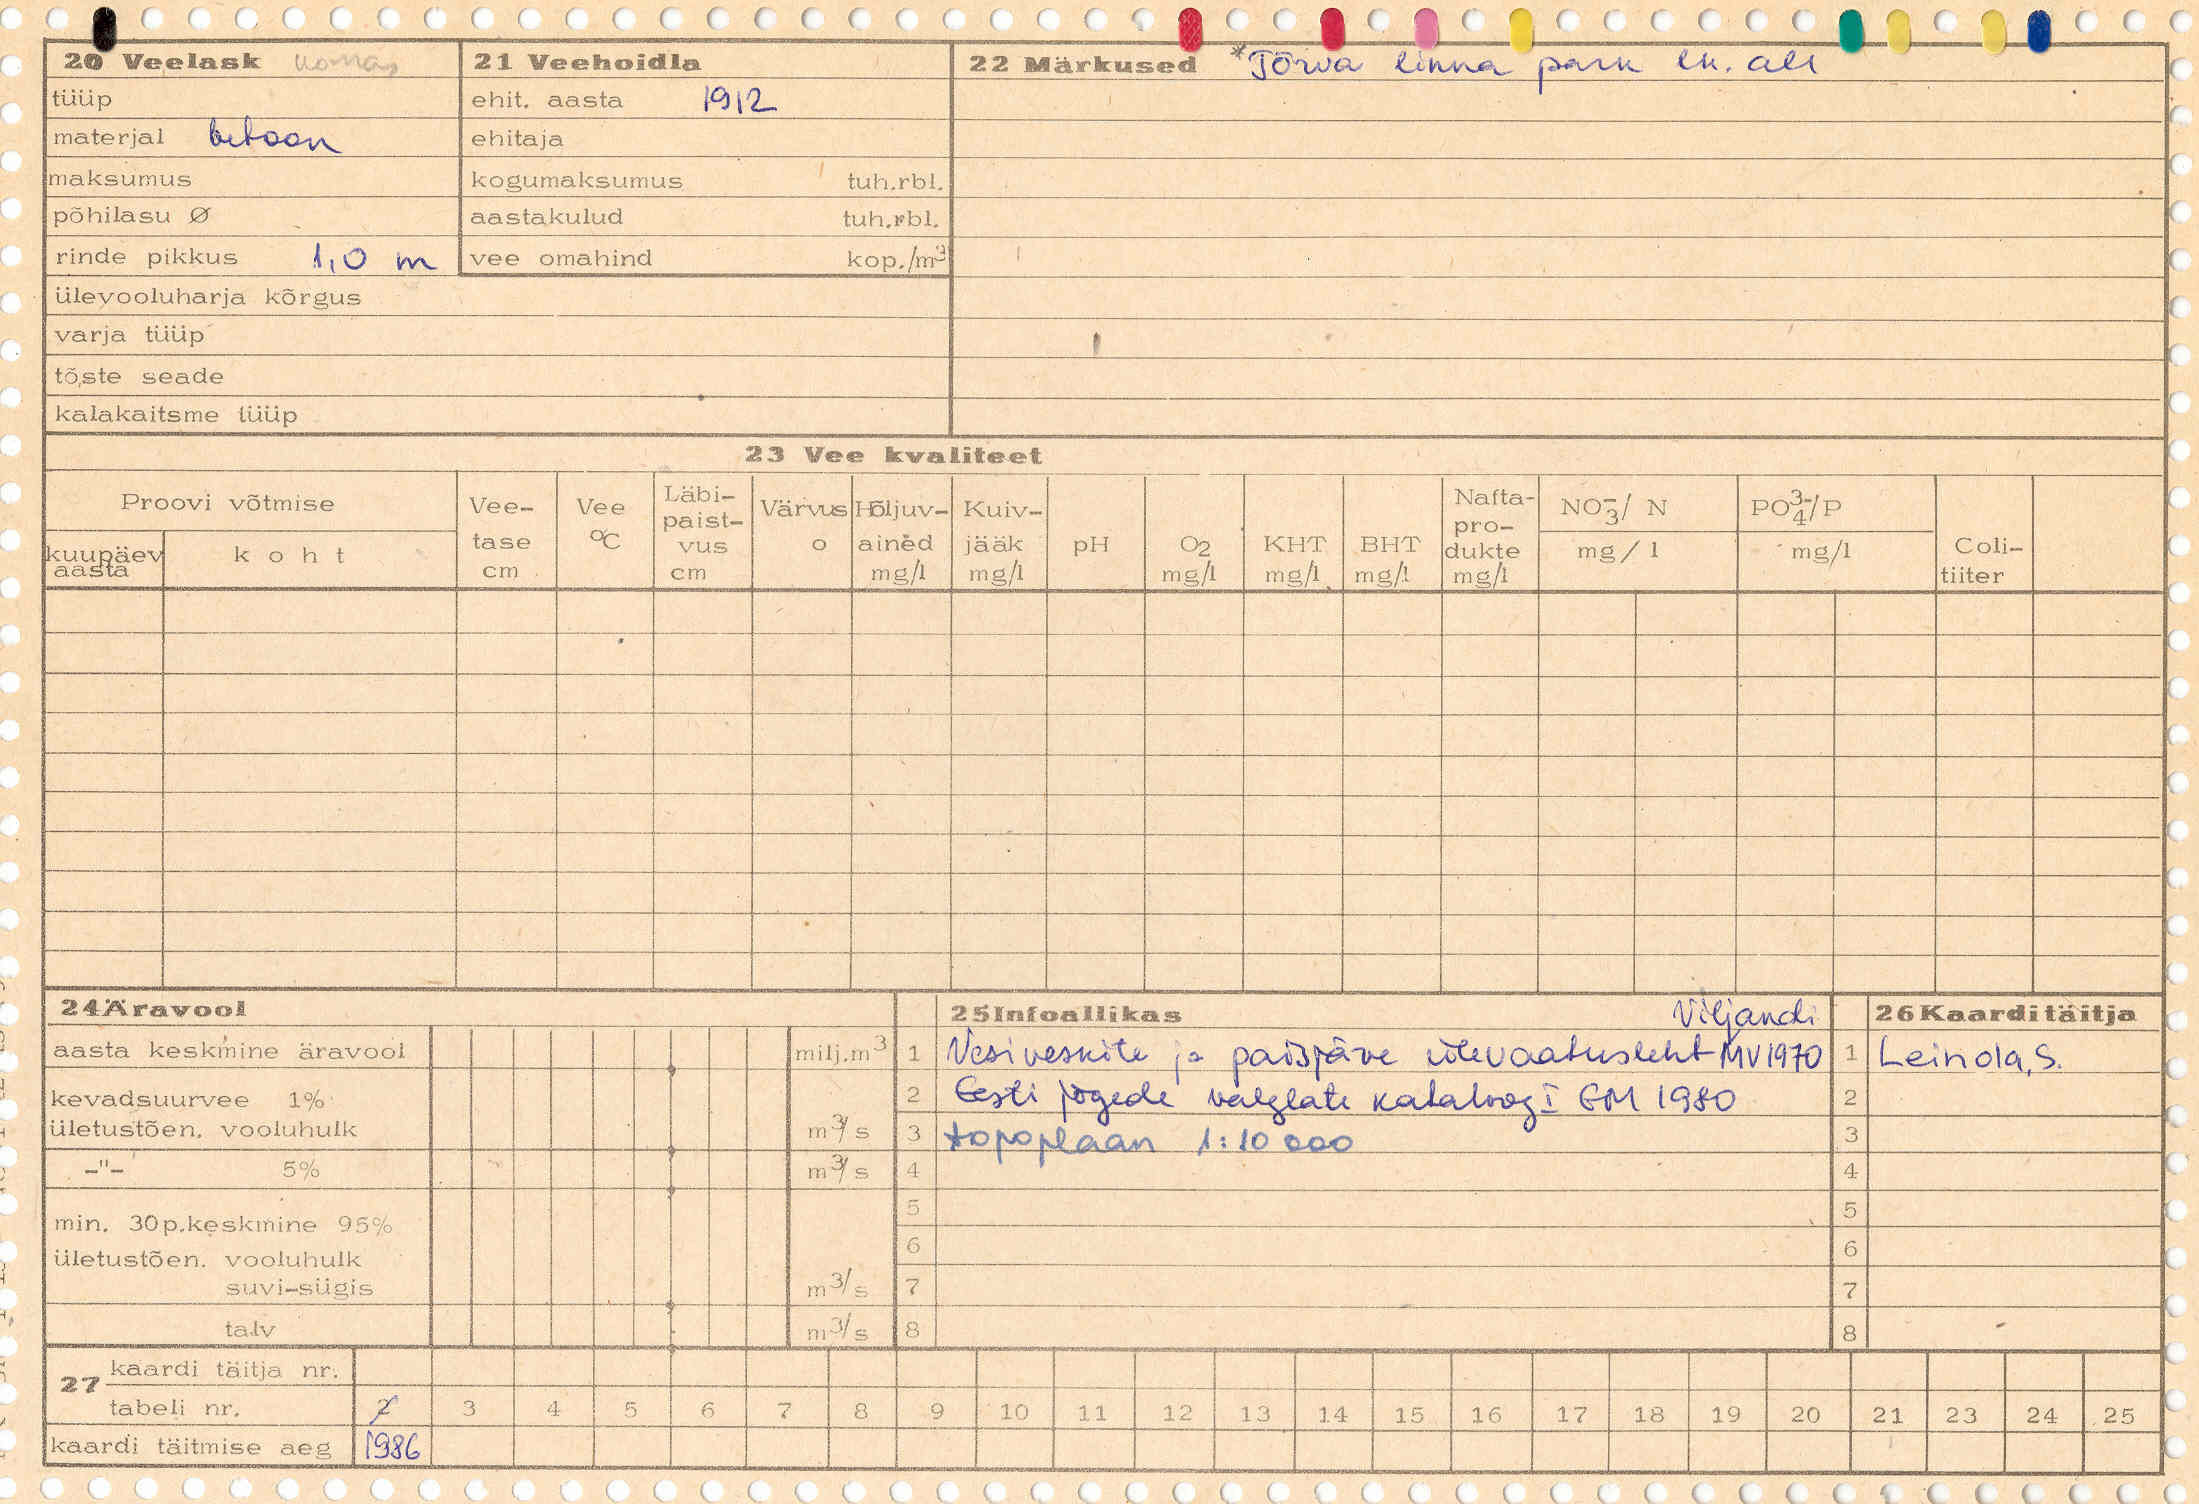 20 Veelask korras
tüüp
materjal betoon
maksumus
põhilasu Ø
rinde pikkus 1,0 m
ülevooluharja kõrgus
varja tüüp
tõste seade
kalakaitsme tüüp
21 Veehoidla
ehit. aasta 1912
ehitaja
kogumaksumus tuh.rbl.
aastakulud tuh.rbl.
vee omahind kop./m³
22 Märkused *Tõrva linna park lk. all
23 Vee kvaliteet
Proovi võtmise
kuupäev aasta
koht
Vee-tase cm
Vee °C
Läbi-paist-vus cm
Värvus o
Hõljuv-ained mg/l
Kuiv-jääk mg/l
pH
O2 mg/l
KHT mg/l
BHT mg/l
Nafta-pro-dukte mg/l
NO₃⁻/ N mg/l
PO₄³⁻/P mg/l
Coli-tiiter
24 Äravool
aasta keskmine äravool milj.m³
kevadsuurvee 1%
ületustõen. vooluhulk m³/s
-"- 5% m³/s
min. 30p.keskmine 95%
ületustõen. vooluhulk
suvi-sügis m³/s
talv m³/s
25 Infoallikas Viljandi
1 Vesiveskite ja paisjärve ülevaatusleht MV1970
2 Eesti jõgede valglate kataloog I EM 1980
3 topoplaan 1:10 000
4
5
6
7
8
26 Kaardi täitja
1 Leinola, S.
2
3
4
5
6
7
8
27 kaardi täitja nr.
tabeli nr. 2 3 4 5 6 7 8 9 10 11 12 13 14 15 16 17 18 19 20 21 23 24 25
kaardi täitmise aeg 1986